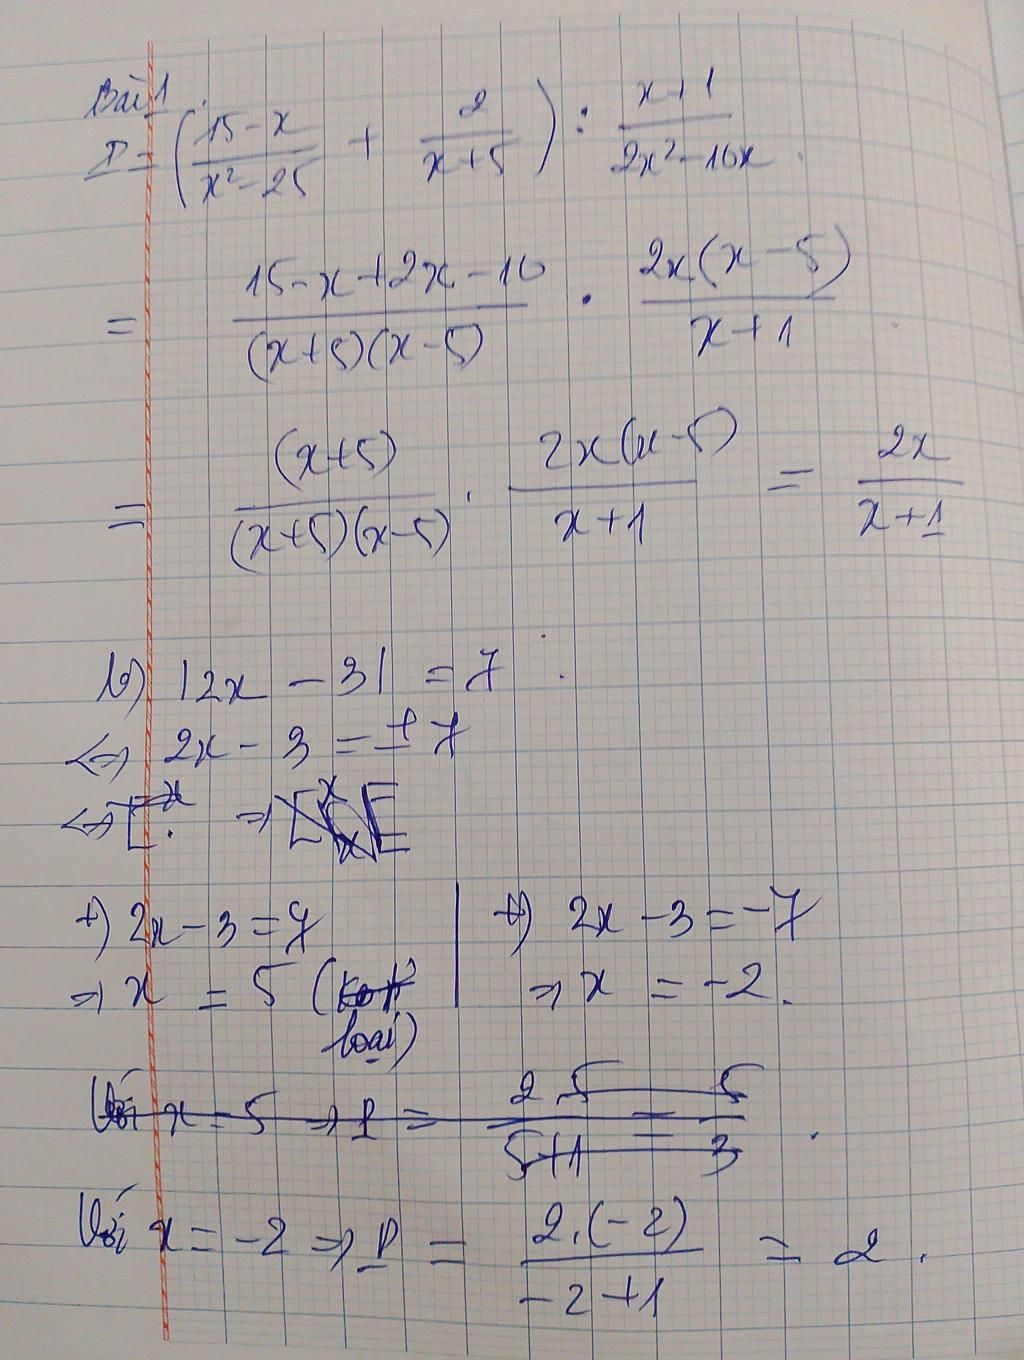 Bài 1
P = ((15-x)/(x²-25) + 2/(x+5)) : (x+1)/(2x²-10x).
= (15-x+2x-10)/((x+5)(x-5)) . (2x(x-5))/(x+1)
= (x+5)/((x+5)(x-5)) . (2x(x-5))/(x+1) = 2x/(x+1)
b) |2x - 3| = 7
<=> 2x - 3 = ± 7
+) 2x - 3 = 7 | +) 2x - 3 = -7
=> x = 5 (loại) | => x = -2.
Với x = 5 => P = 2.5/(5+1) = 5/3
Với x = -2 => P = (2.(-2))/(-2+1) = 2.